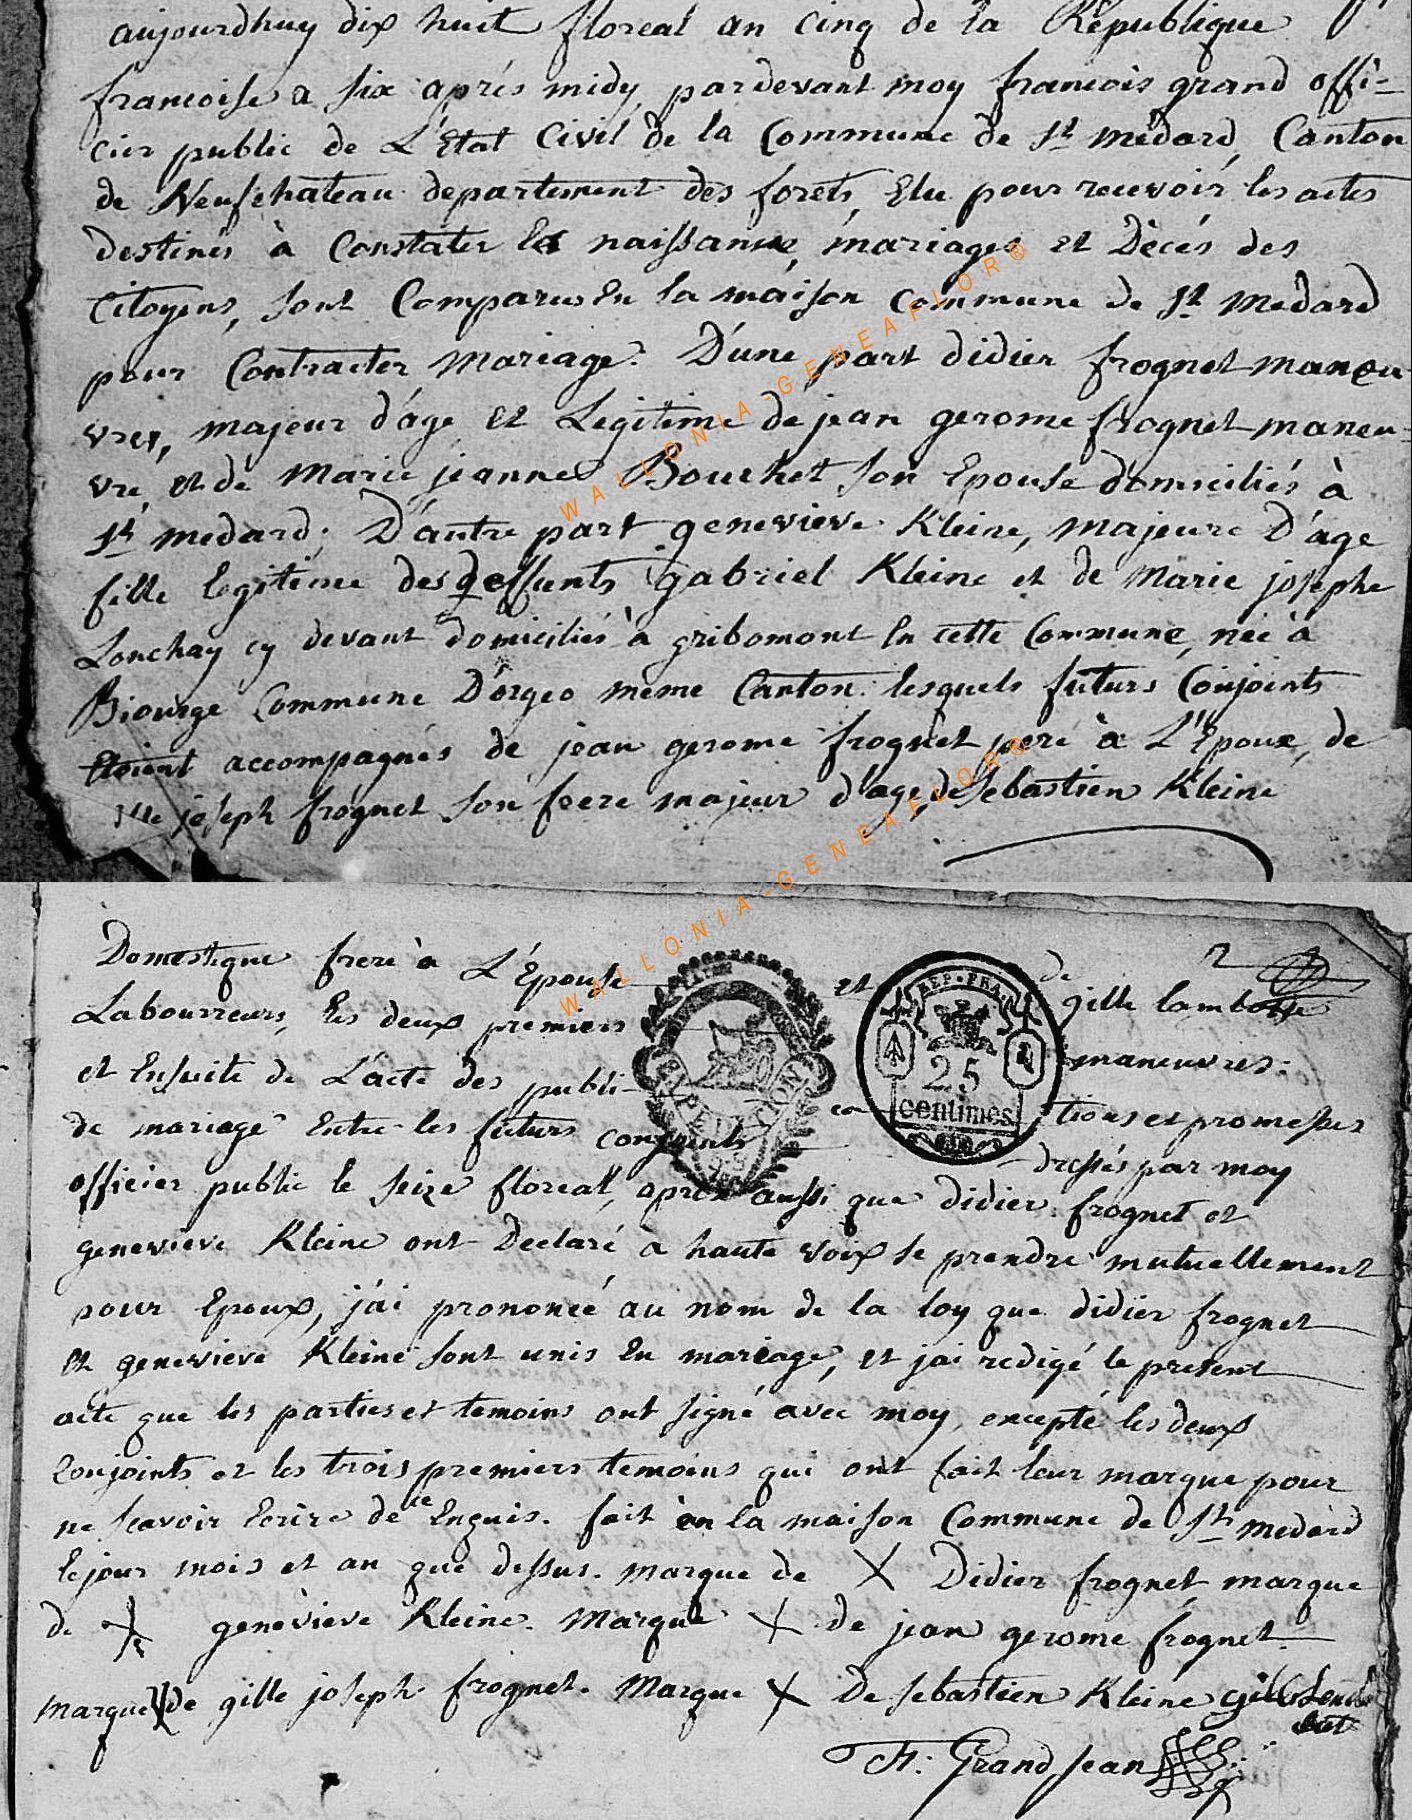 aujourdhuy dix huit floreal an cinq de la République
francoise a six aprés midy, pardevant moy francois grand offi-
cier public de L'Etat Civil de la Commune de St médard, Canton
de Neufchateau departement des forets, Elu pour recevoir les actes
destinés à Constater les naissance, mariages et Décés des
Citoyens, sont Comparus En la maison Commune de St Medard
pour Contracter Mariage. D'une part didier frognet maneu-
vres, majeur d'age et Legitime de jean gerome frognet maneu-
vre, et de Marie jeanne Bouchet son Epouse domiciliés à
St medard; D'autre part genevieve Kleine, majeure D'age
fille legitime des deffunts gabriel Kleine et de Marie josephe
Lonchay cy devant domiciliés à gribomont En cette Commune, née à
Biourge Commune D'orgeo meme Canton. lesquels futurs Conjoints
Etoient accompagnés de jean gerome frognet pere à L'Epoux, de
gille joseph frognet son frere majeur d'age, de Sebastien Kleine
WALLONIA-GENEAFLOR®
WALLONIA-GENEAFLOR®
2
Domestique frere à L'Epouse et de gille
Labourreurs, les deux premiers maneuvres.
REP. FRA.
25
centimes
et Ensuite de L'acte des publications et promesses
de mariage Entre les futurs conjoints dressés par moy
officier public le seize floreal, aprés aussi que didier frognet et
genevieve Kleine ont Declaré à haute voix se prendre mutuellement
pour Epoux, j'ai prononcé au nom de la loy que didier frognet
et genevieve Kleine sont unis En mariage, et jai redigé le present
acte que les parties et temoins ont signé avec moy, excepté les deux
Conjoints et les trois premiers temoins qui ont fait leur marque pour
ne scavoir Ecrire de ce Enquis. fait en la maison Commune de St medard
le jour mois et an que dessus. marque de X Didier frognet, marque
de X genèvieve Kleine. Marque X de jean gerome frognet.
Marque X de gille joseph frognet. Marque X de sebastien Kleine
F. Grandjean